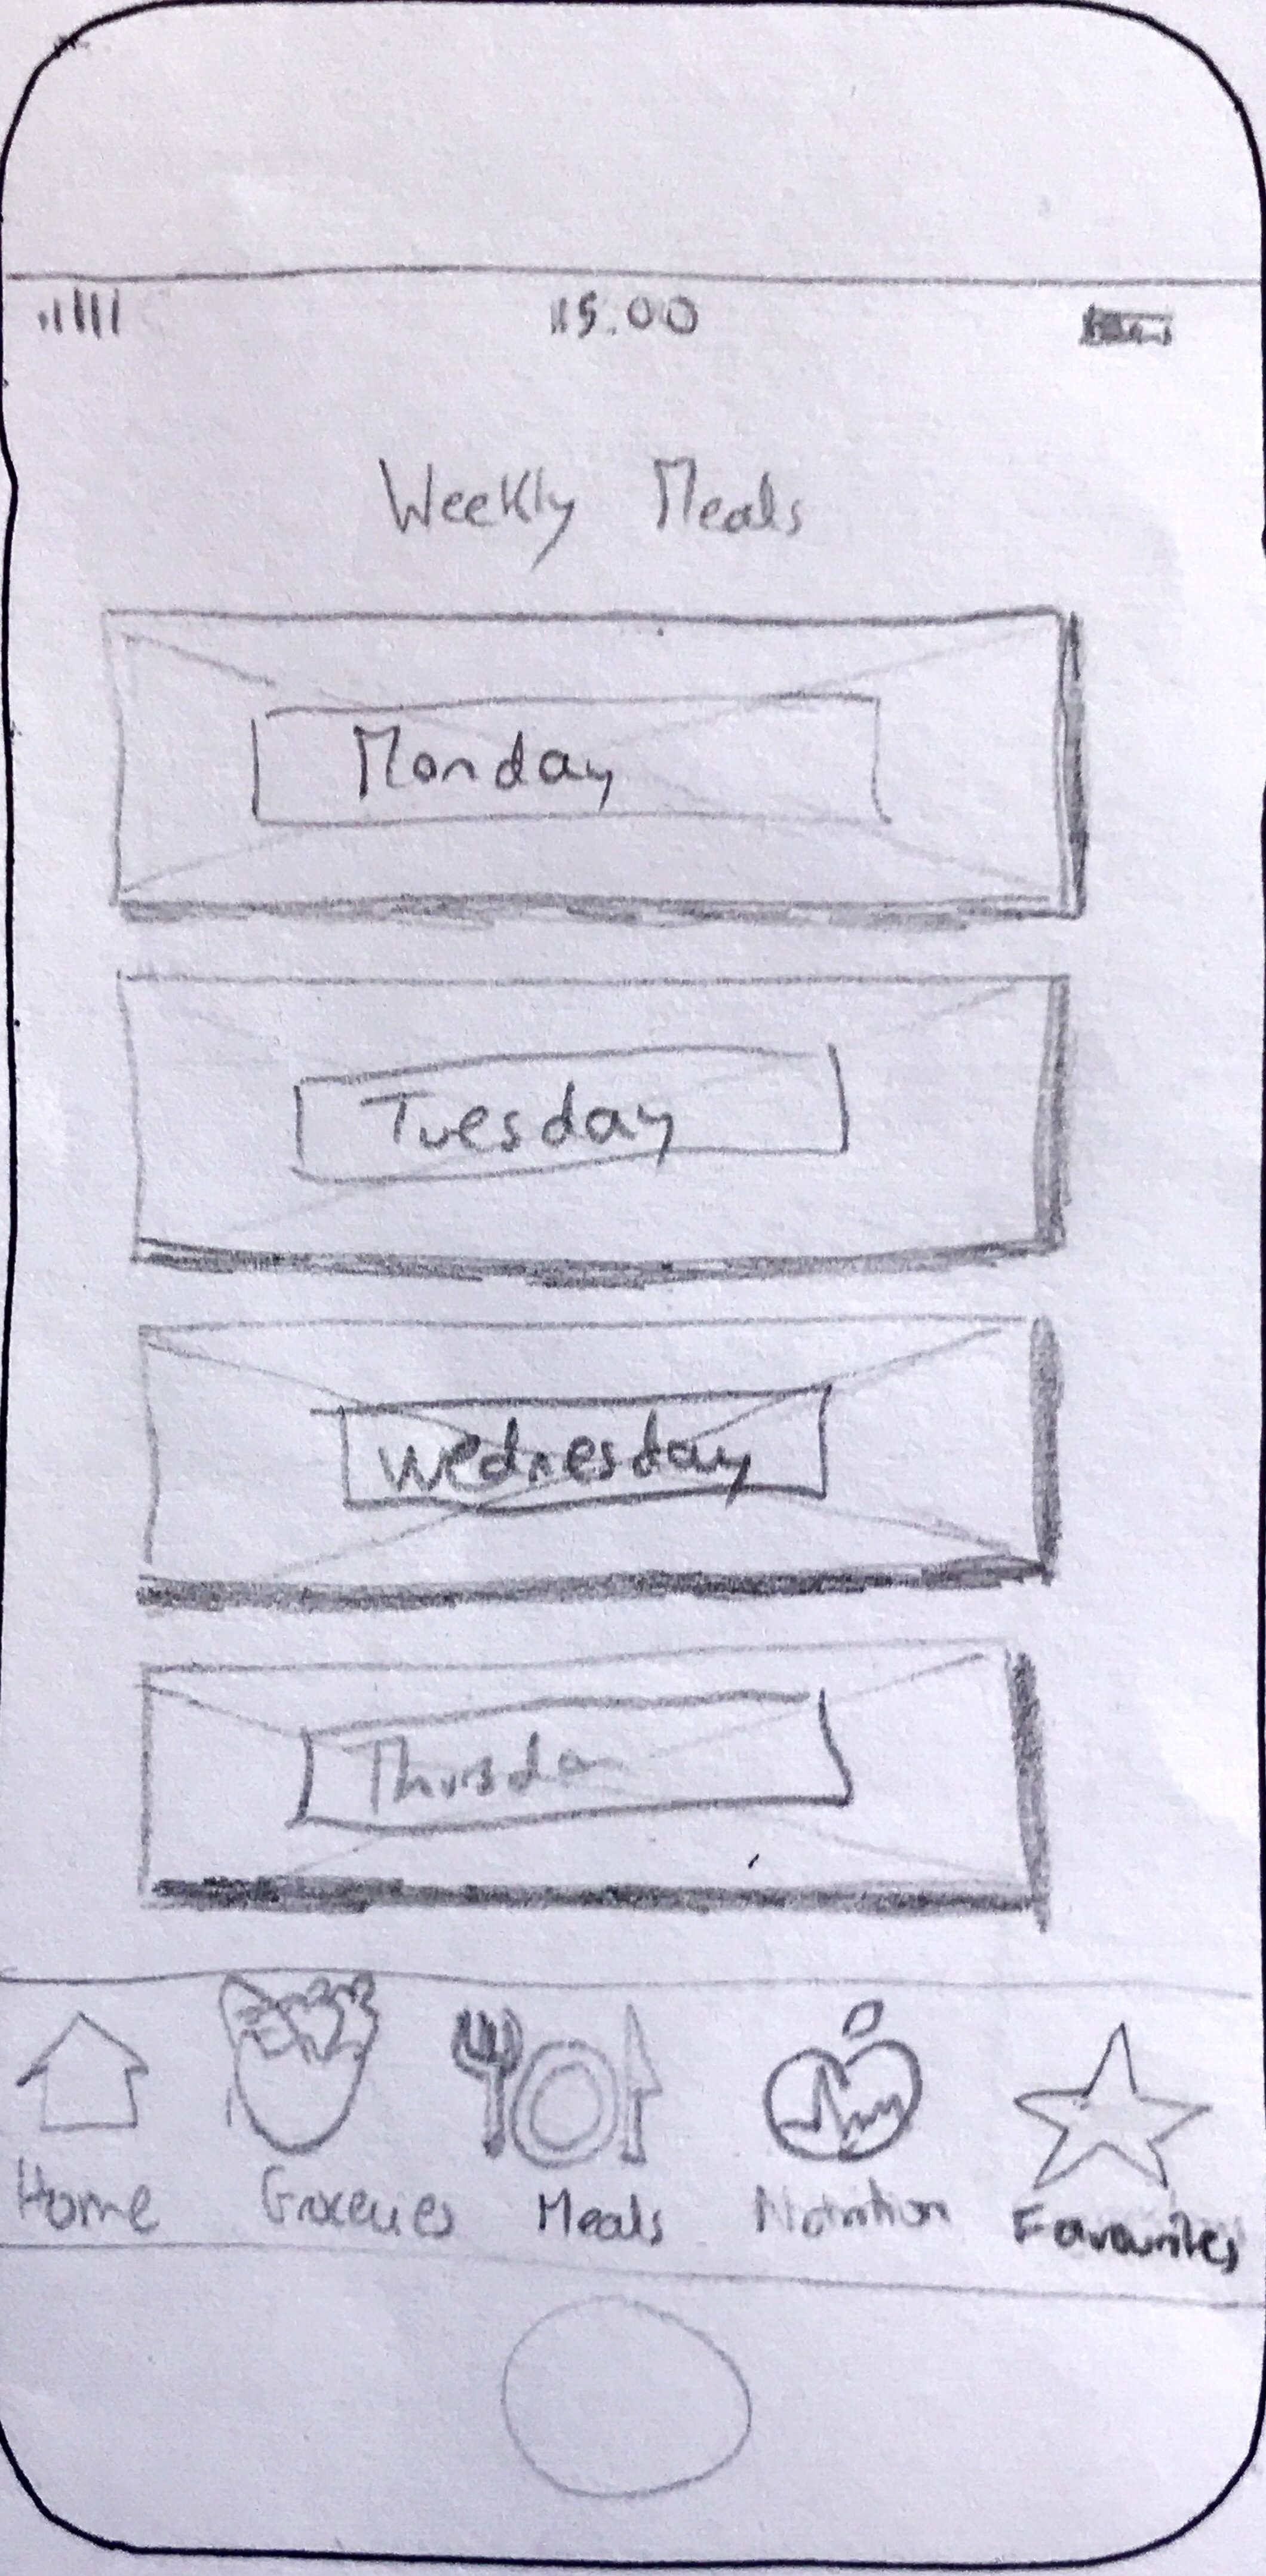 15:00
Weekly Meals
Monday
Tuesday
Wednesday
Thursda
Home Groceries Meals Nutrition Favourites